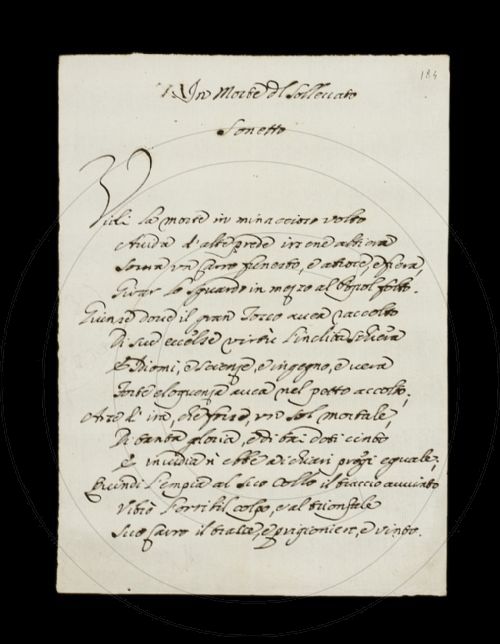 184
In Morte del Sollevato
Sonetto
Vidi la morte in minaccioso volto
Avida d'alte prede irsene altiera
Sovra un Carro funesto, e atroce, e fiera,
Girar lo sguardo in mezzo al popol folto.
Giunse dove il gran Tocco avea raccolto
Di sue eccelse virtù l'inclita schiera
E Idiomi, e scienze, e ingegno, e vera
Forte eloquenza avea nel petto accolto;
Arse d'ira, che fosse un sol mortale,
Di tanta gloria, e di tai doti cinto
E invidia n'ebbe a i chiari pregi eguale;
Quindi l'empia al suo Collo il braccio avvinto
Vibrò l'orribil colpo, e al trionfale
Suo Carro il trasse, e prigioniero, e vinto.